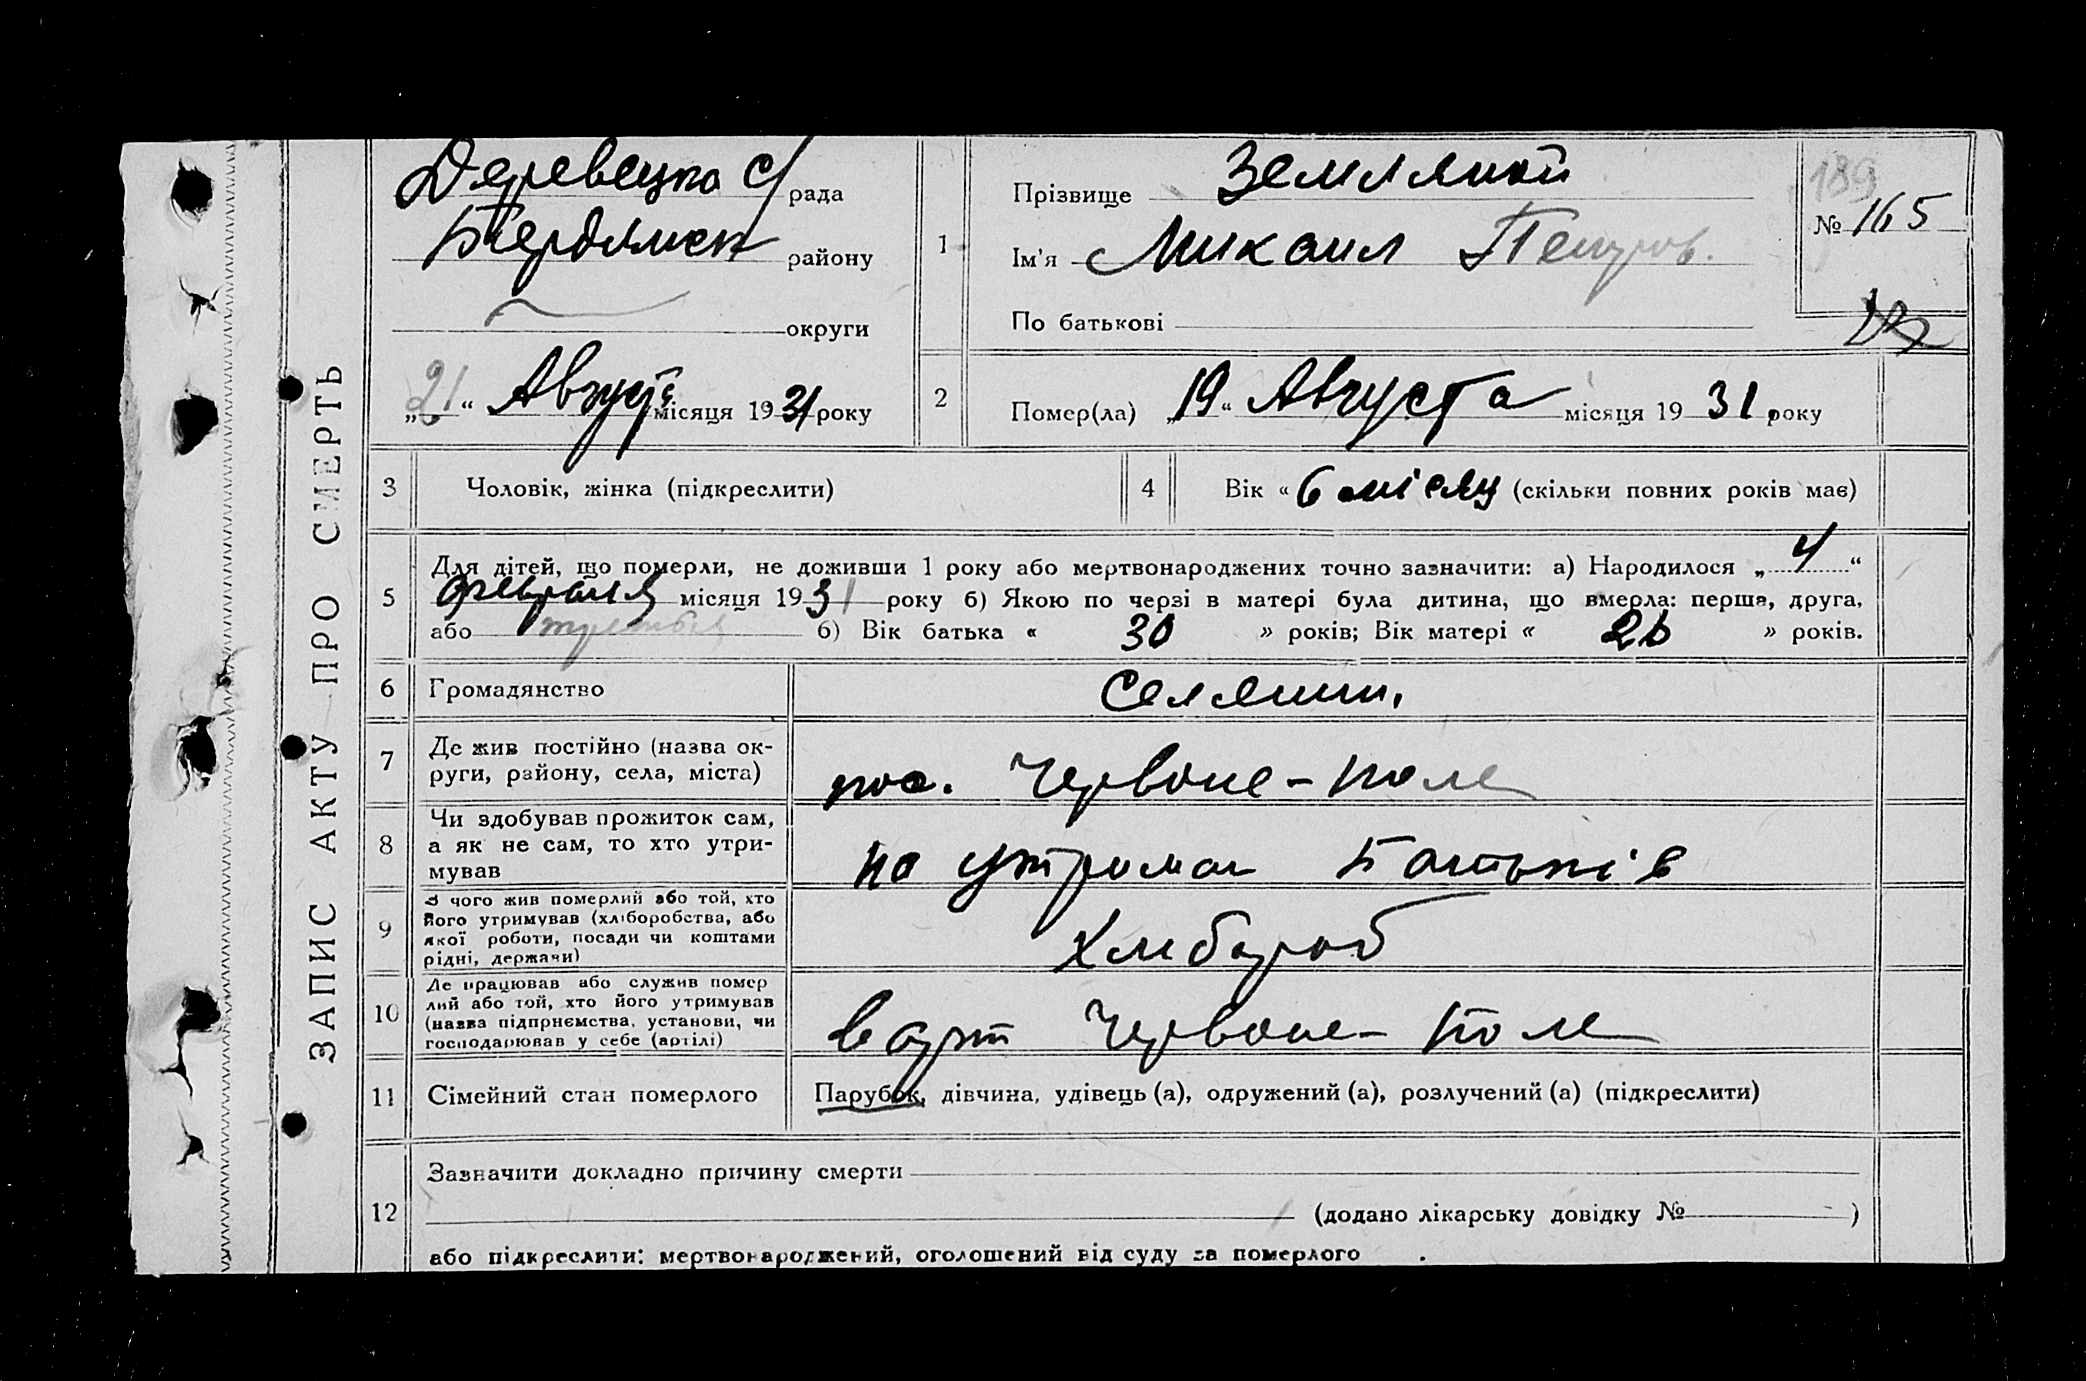 ЗАПИС АКТУ ПРО СМЕРТЬ
рада
Бердянск району
округи
„21“ Август місяця 1931 року
1
Прізвище Земляной
Ім'я Михаил Петров.
По батькові
189
№ 165
2
Помер(ла) „19“ Августа місяця 1931 року
3 Чоловік, жінка (підкреслити)
4 Вік « 6 місяц (скільки повних років має)
5 Для дітей, що померли, не доживши 1 року або мертвонароджених точно зазначити: а) Народилося „4“
февраля місяця 1931 року б) Якою по черзі в матері була дитина, що вмерла: перша, друга,
або третья б) Вік батька « 30 » років; Вік матері « 26 » років.
6 Громадянство Селянин.
7 Де жив постійно (назва ок-
руги, району, села, міста)
пос. Червоне-Поле
8 Чи здобував прожиток сам,
а як не сам, то хто утри-
мував
на утриман Батьків
9 З чого жив померлий або той, хто
його утримував (хліборобства, або
якої роботи, посади чи коштами
рідні, держави)
Хлибороб
10 Де працював або служив помер
лий або той, хто його утримував
(назва підприємства, установи, чи
господарював у себе (артілі)
в арт Червоне-Поле
11 Сімейний стан померлого Парубок, дівчина, удівець (а), одружений (а), розлучений (а) (підкреслити)
12 Зазначити докладно причину смерти
(додано лікарську довідку № )
або підкреслити: мертвонароджений, оголошений від суду за померлого